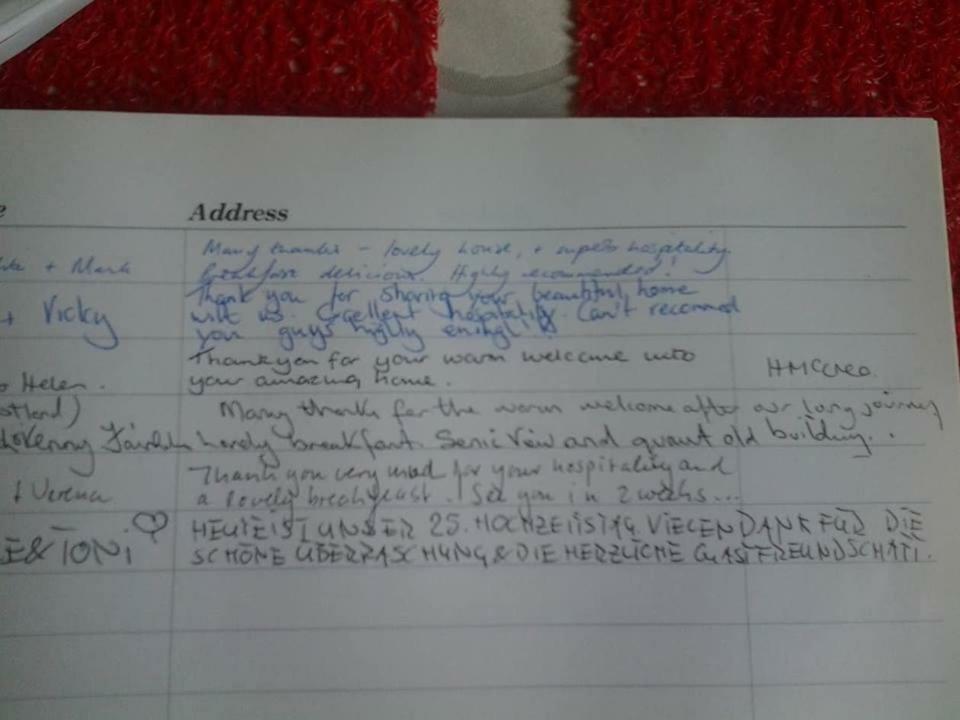 Address
Many thanks - lovely house, + superb hospitality.
+ Mark
Breakfast delicious. Highly recommended!
Thank you for sharing your beautiful home
+ Vicky
with us. Excellent hospitality. Can't recommed
you guys highly enough!
Thankyou for your warm welcome into
Helen. your amazing home.
HMcCrea
Many thanks for the warm welcome after our long journey
Kenny Lovely breakfast. Senic View and quant old building.
Thank you very much for your hospitality and
+ Verena a lovely breakfast. See you in 2 weeks...
HEUTE IST UNSER 25. HOCHZEITSTAG. VIELEN DANK FÜR DIE
E & TONI SCHÖNE ÜBERRASCHUNG & DIE HERZLICHE GASTFREUNDSCHAFT.